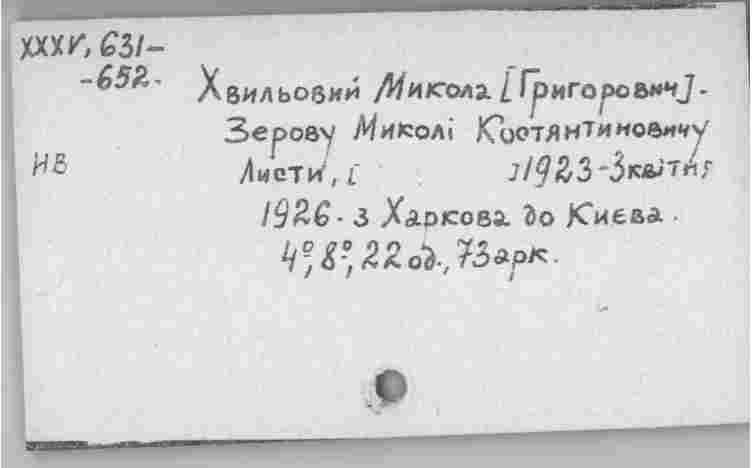 XXXV, 631–
-652.
Хвильовий Микола [Григорович].
Зерову Миколі Костянтиновичу
НВ
Листи, [ ]1923-3 квітня
1926. з Харкова до Києва.
4º, 8º, 22 од., 73 арк.